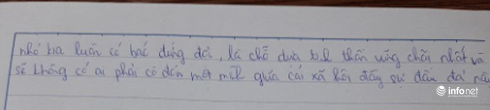 nhé kia luôn có bác đứng đợi, là chỗ dựa tinh thần vững chãi nhất và
sẽ không có ai phải cô đơn một mình giữa cái xã hội đầy sự dối trá này
infonet